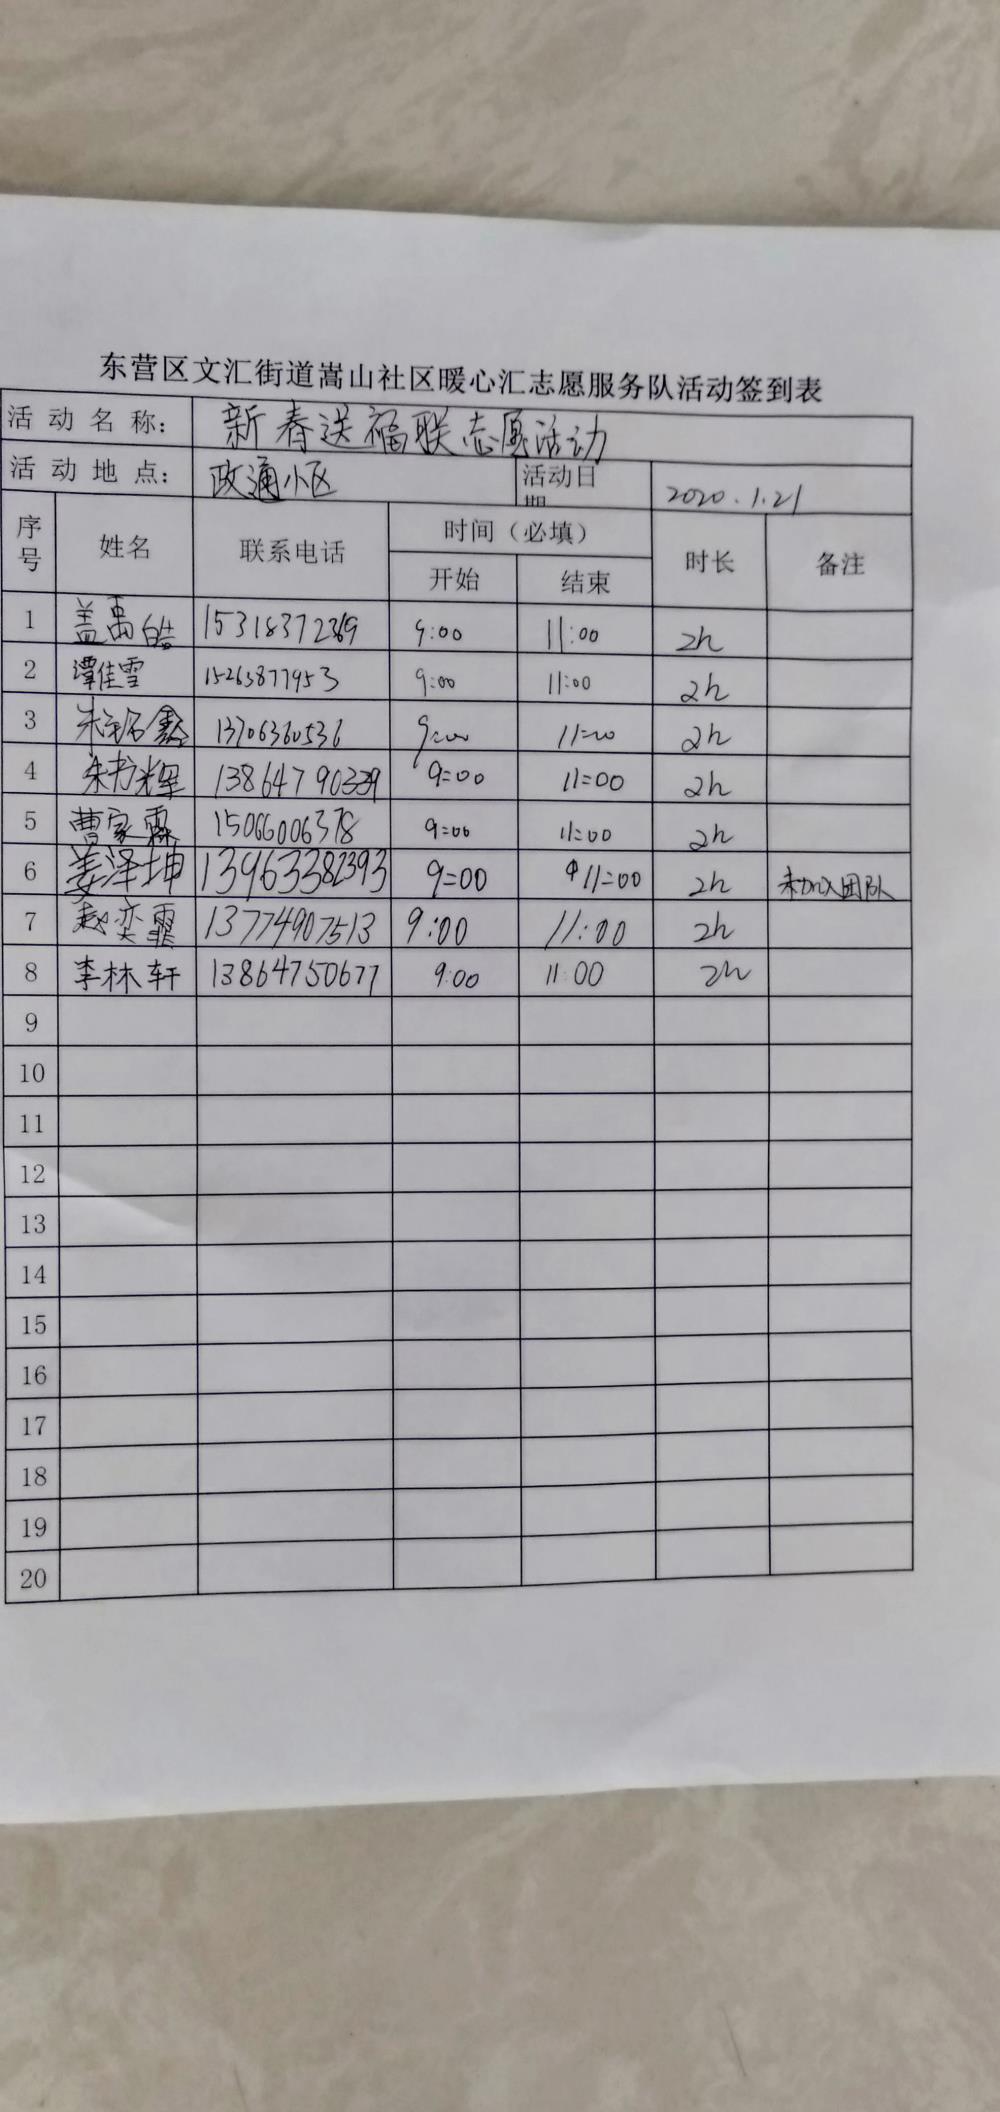 东营区文汇街道嵩山社区暖心汇志愿服务队活动签到表
活动名称： 新春送福联志愿活动
活动地点： 政通小区 活动日期 2020.1.21
序号 姓名 联系电话 时间（必填） 时长 备注
开始 结束
1 盖禹皓 15318372369 9:00 11:00 2h
2 谭佳雪 15263877953 9:00 11:00 2h
3 朱铭鑫 13706360536 9:00 11:00 2h
4 朱书辉 13864790339 9:00 11:00 2h
5 曹家霖 15066006378 9:00 11:00 2h
6 姜泽坤 13963382393 9=00 11=00 2h 未加入团队
7 赵奕霏 13774907513 9:00 11:00 2h
8 李林轩 13864750677 9:00 11:00 2h
9
10
11
12
13
14
15
16
17
18
19
20